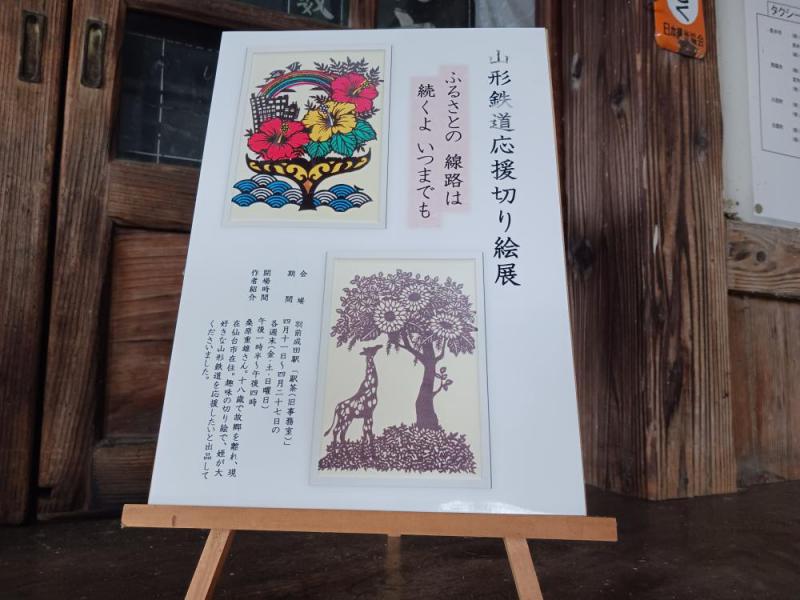 山形鉄道応援切り絵展
ふるさとの 線路は
続くよ いつまでも
会場 羽前成田駅「駅茶(旧事務室)」
期間 四月十一日~四月二十七日の
各週末(金・土・日曜日)
開場時間 午後一時半~午後四時
作者紹介 桑原重雄さん。十八歳で故郷を離れ、現
在仙台市在住。趣味の切り絵で、姪が大
好きな山形鉄道を応援したいと出品して
くださいました。
タクシー
日本
協会